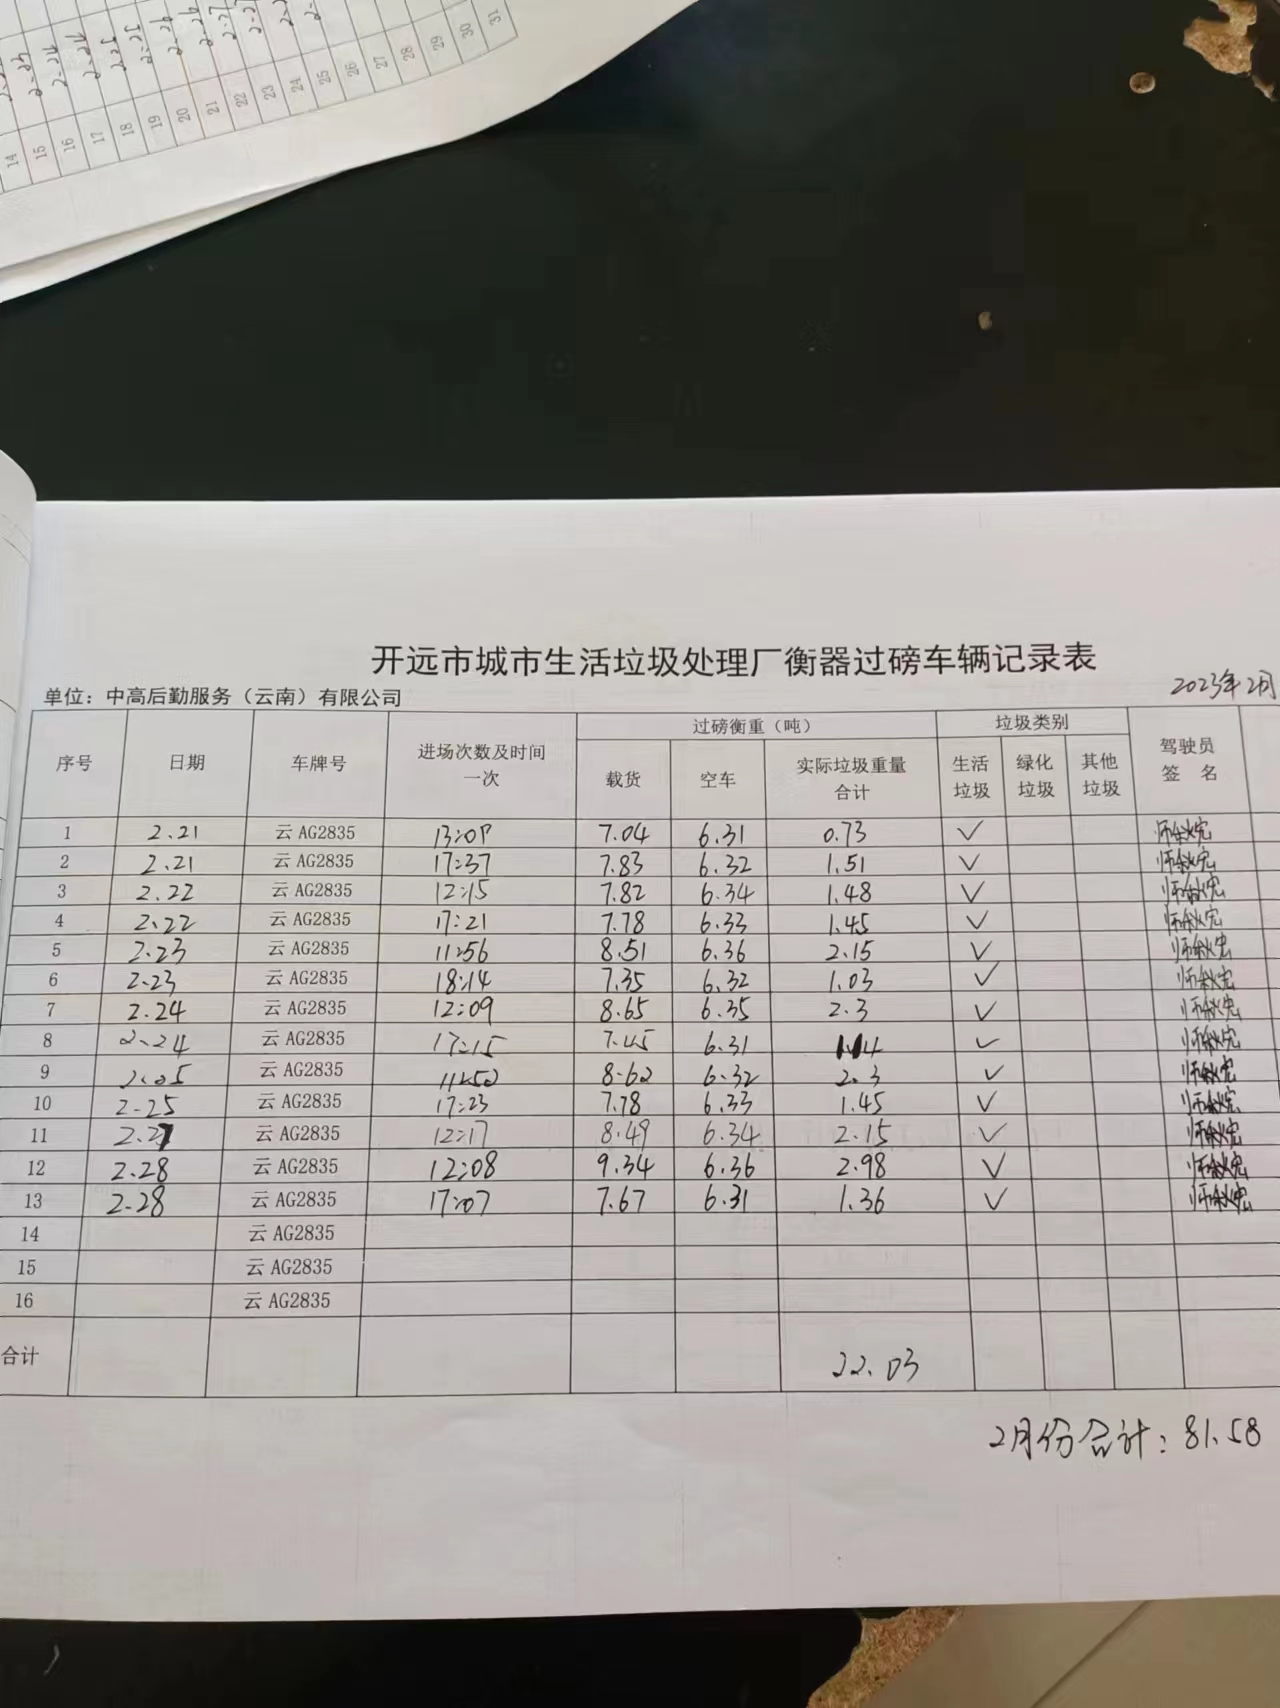 14 15 16 17 18 19 20 21 22 23 24 25 26 27 28 29 30 31
开远市城市生活垃圾处理厂衡器过磅车辆记录表
单位：中高后勤服务（云南）有限公司 2023年2月
序号 日期 车牌号 进场次数及时间 一次 过磅衡重（吨） 垃圾类别 驾驶员 签 名
载货 空车 实际垃圾重量 合计 生活 垃圾 绿化 垃圾 其他 垃圾
1 2.21 云 AG2835 13:07 7.04 6.31 0.73 ✓
2 2.21 云 AG2835 17:37 7.83 6.32 1.51 ✓
3 2.22 云 AG2835 12:15 7.82 6.34 1.48 ✓
4 2.22 云 AG2835 17:21 7.78 6.33 1.45 ✓
5 2.23 云 AG2835 11:56 8.51 6.36 2.15 ✓
6 2.23 云 AG2835 18:14 7.35 6.32 1.03 ✓
7 2.24 云 AG2835 12:09 8.65 6.35 2.3 ✓
8 2.24 云 AG2835 17:15 7.45 6.31 1.14 ✓
9 2.25 云 AG2835 11:52 8.62 6.32 2.3 ✓
10 2.25 云 AG2835 17:23 7.78 6.33 1.45 ✓
11 2.27 云 AG2835 12:17 8.49 6.34 2.15 ✓
12 2.28 云 AG2835 12:08 9.34 6.36 2.98 ✓
13 2.28 云 AG2835 17:07 7.67 6.31 1.36 ✓
14 云 AG2835
15 云 AG2835
16 云 AG2835
合计 22.03
2月份合计：81.58